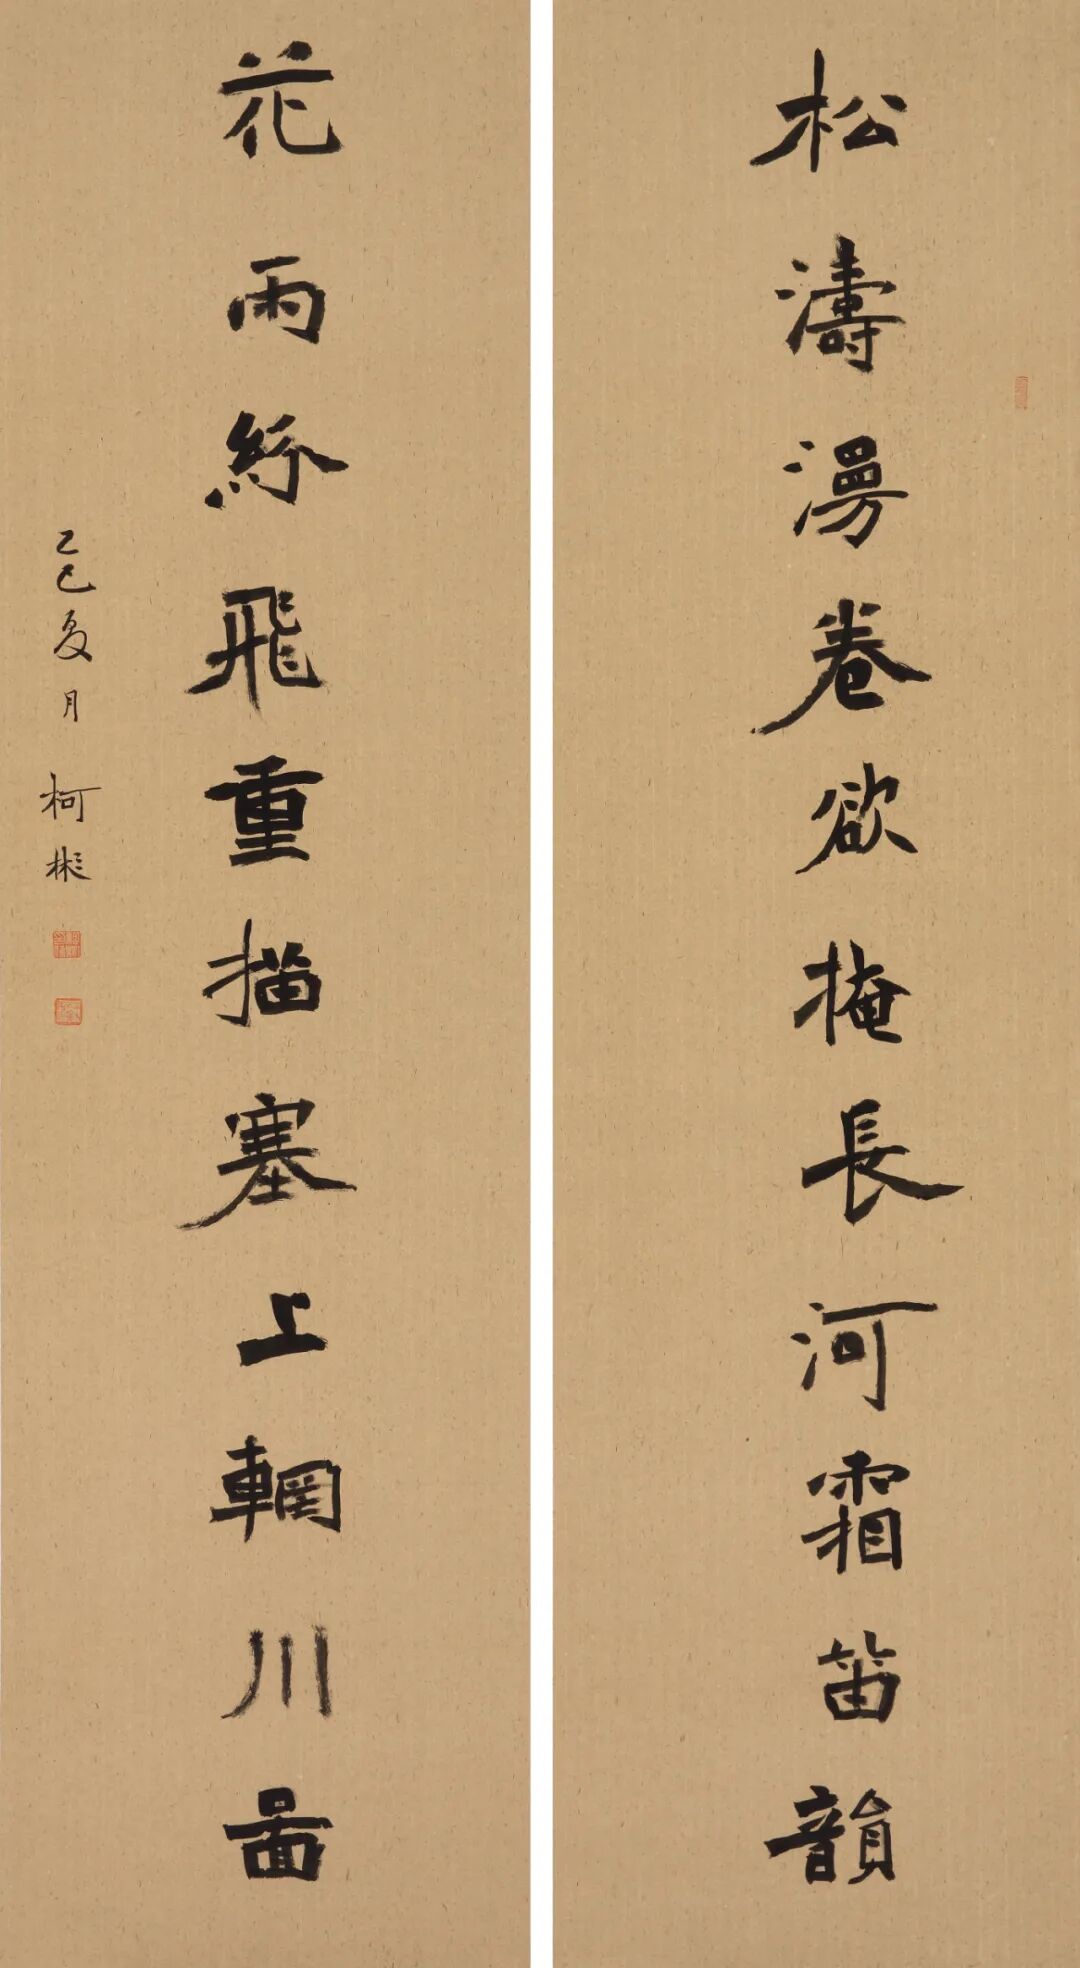 松濤漫卷欲掩長河霜笛韻
花雨紛飛重描塞上輞川圖
乙巳夏月柯彬